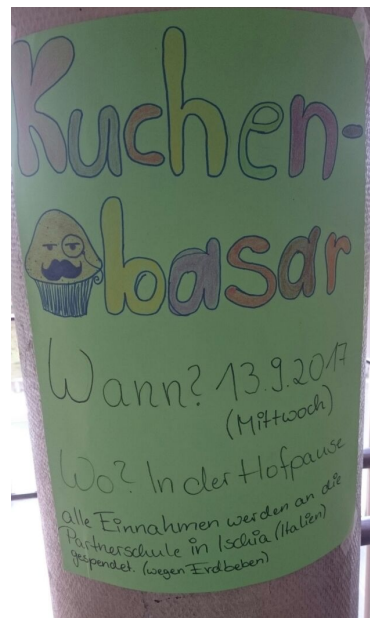 Kuchen-
basar
Wann? 13.9.2017
(Mittwoch)
Wo? In der Hofpause
alle Einnahmen werden an die
Partnerschule in Ischia (Italien)
gespendet. (wegen Erdbeben)